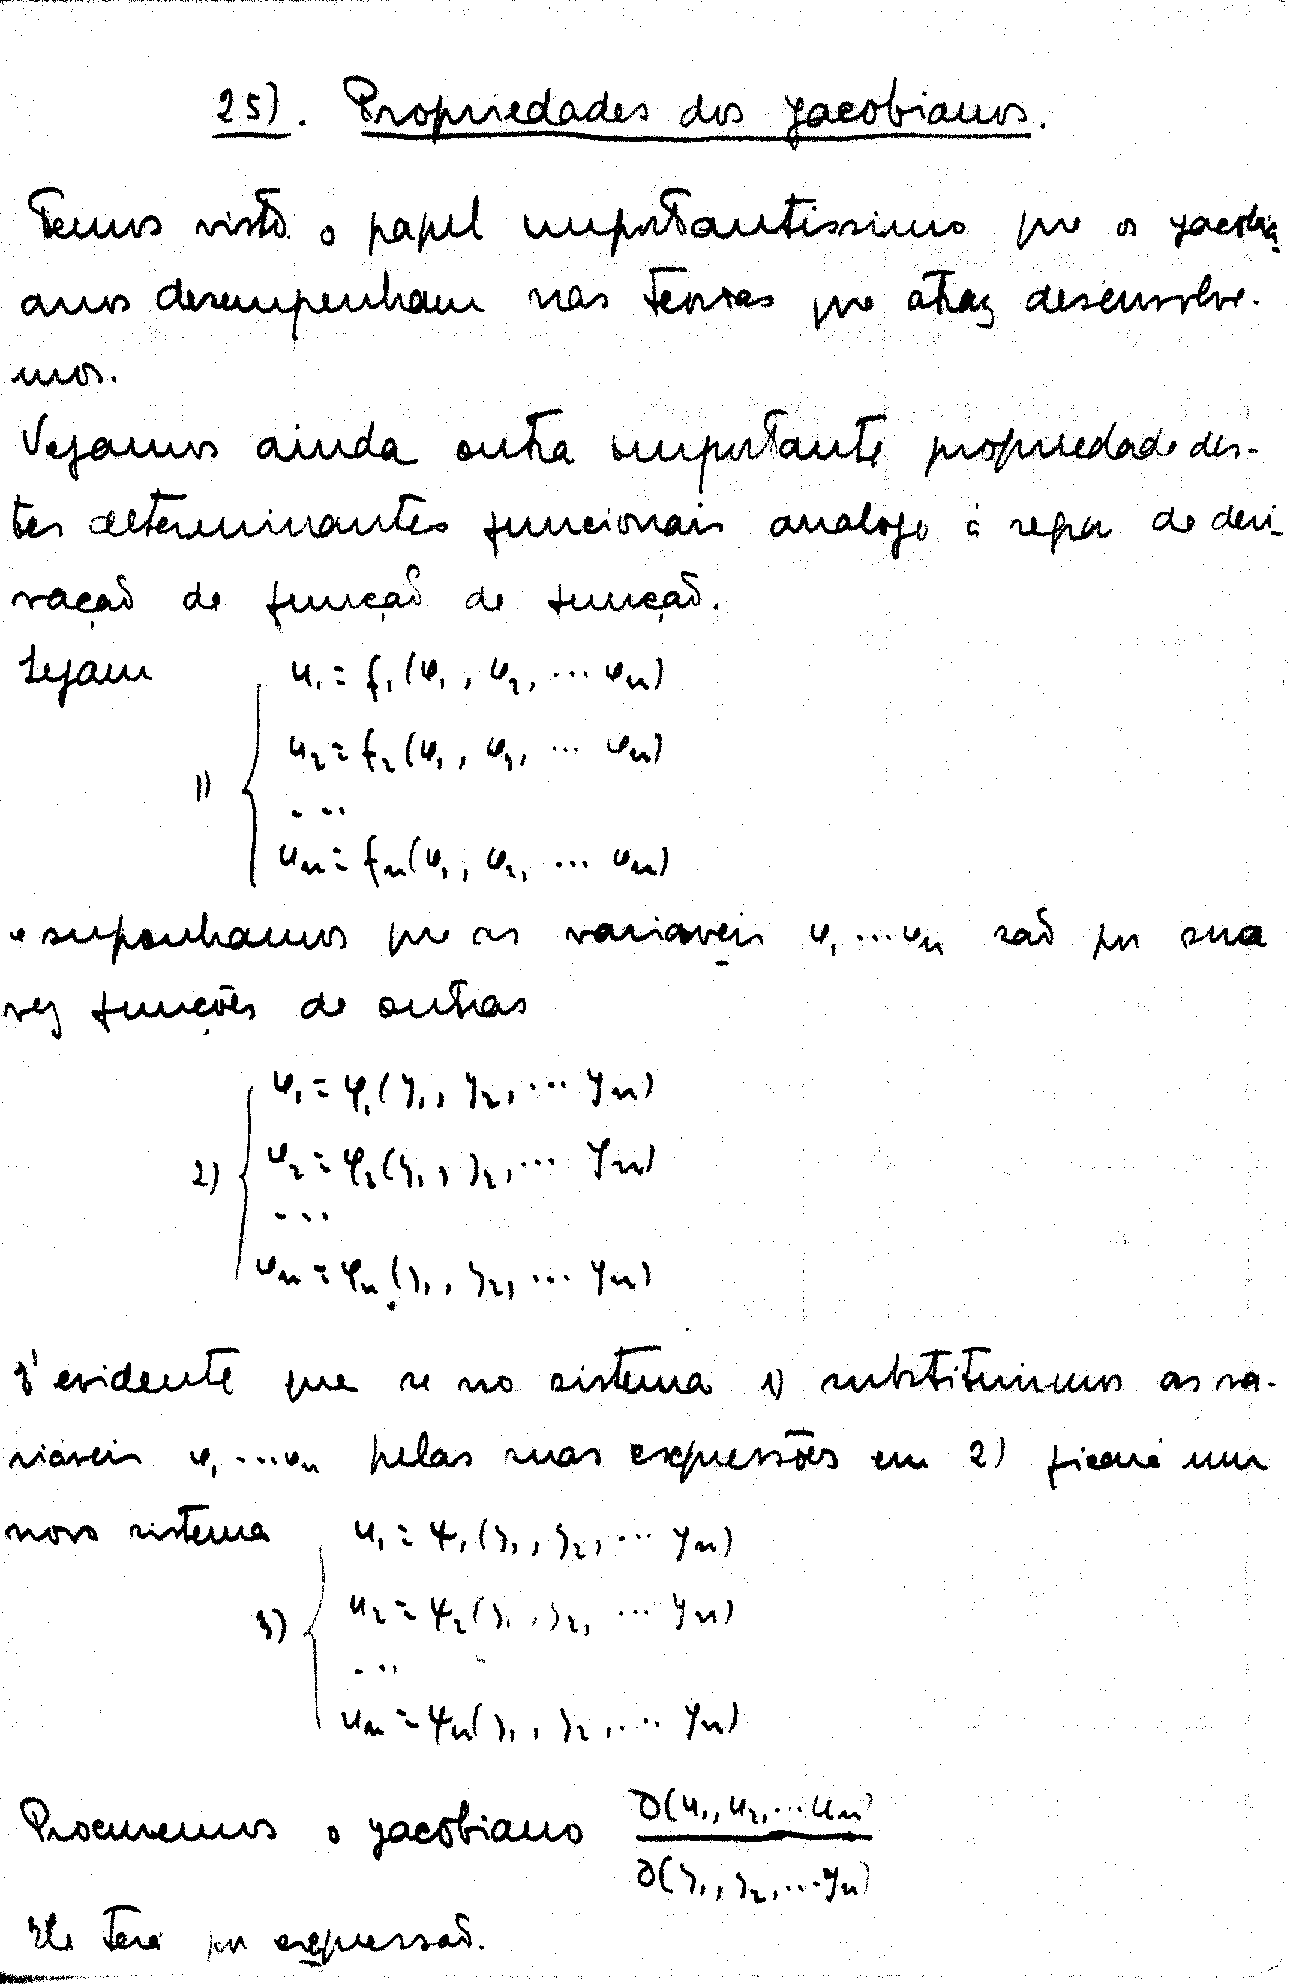 25). Propriedades dos jacobianos.
Temos visto o papel importantissimo que os jacobi-
anos desempenham nas teorias que atraz desenvolve-
mos.
Vejamos ainda outra importante propriedade des-
tes determinantes funcionais analogo á regra de deri-
vação de função de função.
Sejam u₁ = f₁(φ₁, φ₂, ... φₙ)
1) u₂ = f₂(φ₁, φ₂, ... φₙ)
...
uₙ = fₙ(φ₁, φ₂, ... φₙ)
e suponhamos que as variaveis φ₁ ... φₙ são por sua
vez funções de outras
φ₁ = φ₁(y₁, y₂, ... yₙ)
2) φ₂ = φ₂(y₁, y₂, ... yₙ)
...
φₙ = φₙ(y₁, y₂, ... yₙ)
É evidente que se no sistema 1) substituirmos as va-
riaveis φ₁ ... φₙ pelas suas expressões em 2) ficará um
novo sistema u₁ = ψ₁(y₁, y₂, ... yₙ)
3) u₂ = ψ₂(y₁, y₂, ... yₙ)
...
uₙ = ψₙ(y₁, y₂, ... yₙ)
Procuremos o jacobiano ∂(u₁, u₂, ... uₙ)
∂(y₁, y₂, ... yₙ)
Ele terá por expressão.